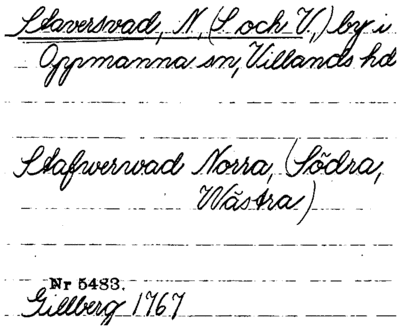 Staversvad, N. (S. och V.) by i
Oppmanna sn, Villands hd
Stafwerwad Norra, (Södra,
Wästra)
Nr 5483.
Gillberg 1767